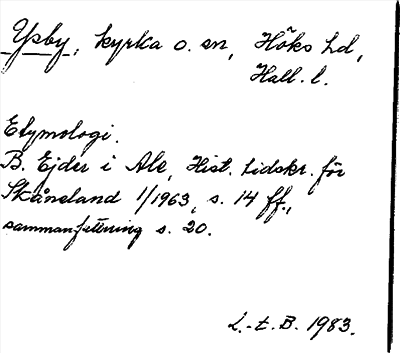 Ysby, kyrka o. sn, Höks hd,
Hall. l.
Etymologi.
B. Ejder i Ale, Hist. tidskr. för
Skåneland 1/1963, s. 14 ff.,
sammanfattning s. 20.
L.-t. B. 1983.